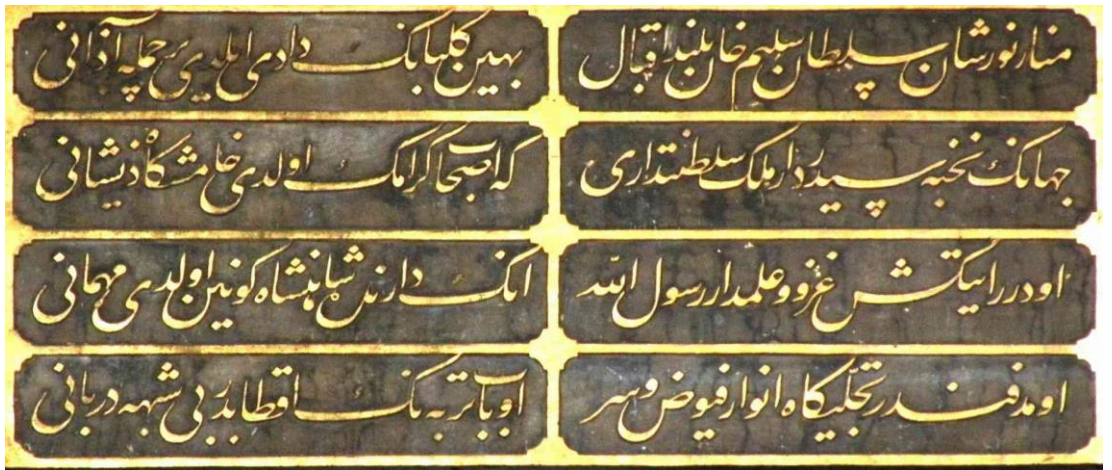 منار نورشان سلطان سلیم خان بلند اقبال
بهین کلبانك دادی ایلدی پر جمله آذانی
جهانك نخبه سیدر دار ملك سلطنتداری
که اصحاب کرامك اولدی مشکاة ذیشانی
اودر رایتکش غزو و علمدار رسول الله
انك دارنده شاهنشاه کونین اولدی مهمانی
او مدفندر تجلیکاه انوار فیوض و سر
او باب تربه نك اقطابدر بی شبهه دربانی